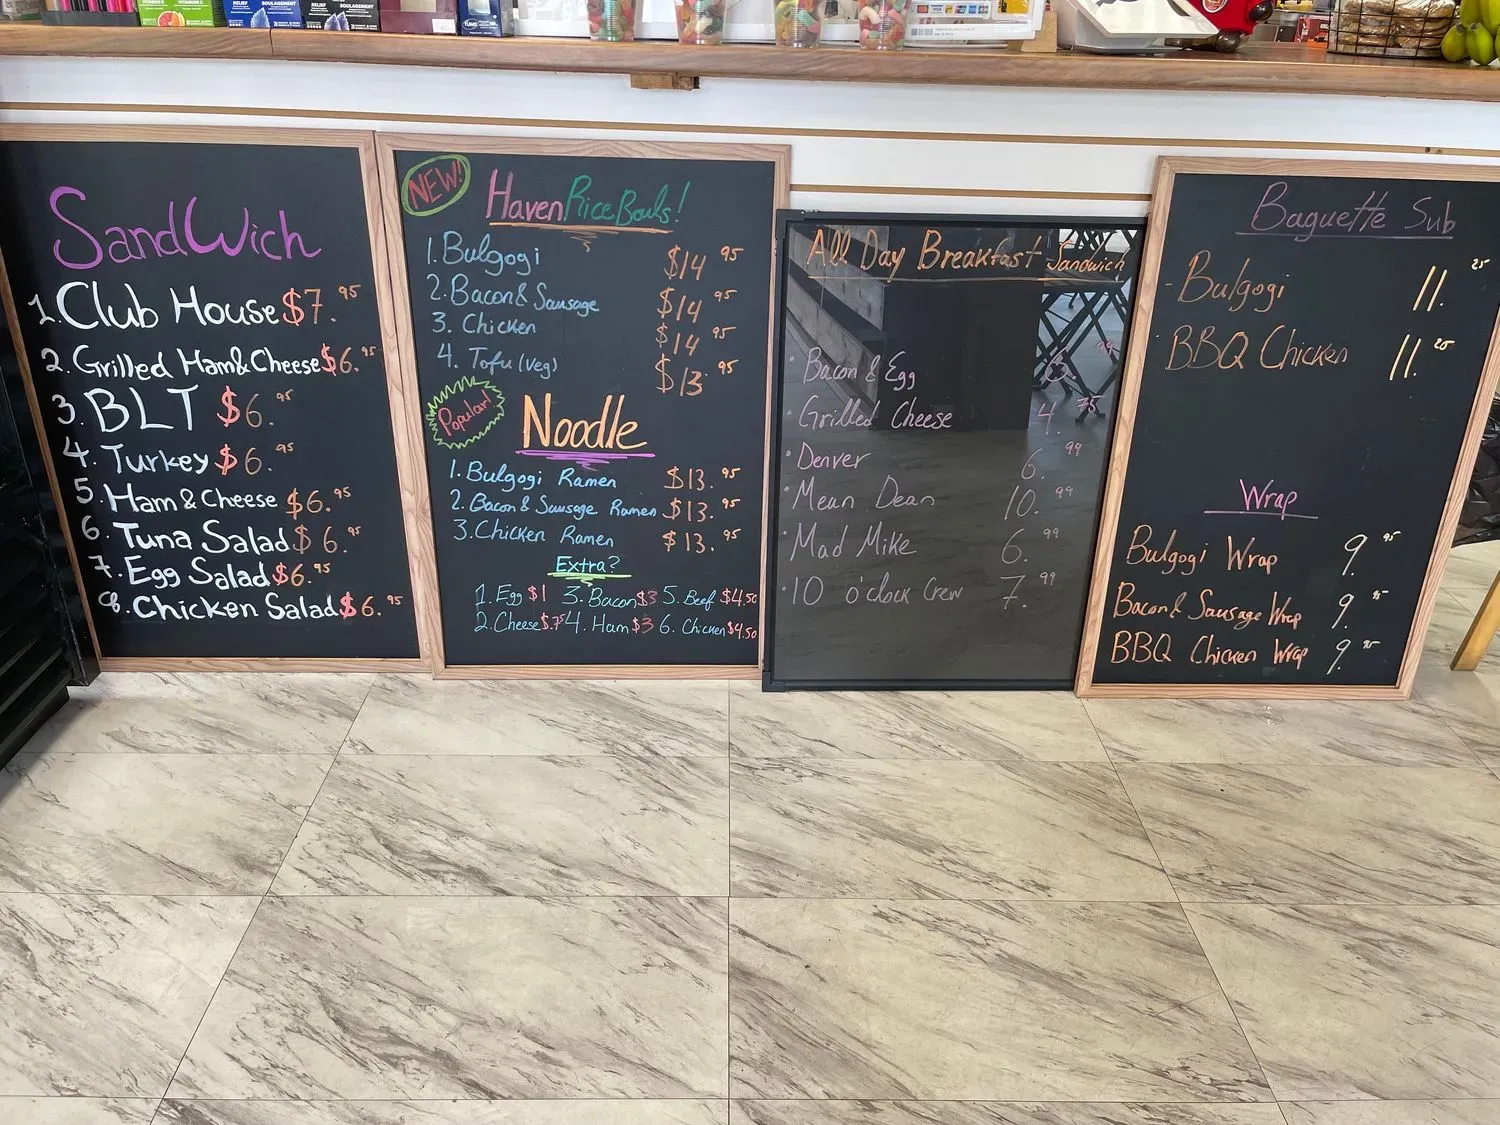 VITAMIN C
VITAMIN C
RELIEF
SOULAGEMENT
RELIEF
SOULAGEMENT
TUMS
SandWich
1. Club House $7.95
2. Grilled Ham & Cheese $6.95
3. BLT $6.95
4. Turkey $6.95
5. Ham & Cheese $6.95
6. Tuna Salad $6.95
7. Egg Salad $6.95
8. Chicken Salad $6.95
NEW!
Haven Rice Bowls!
1. Bulgogi $14.95
2. Bacon & Sausage $14.95
3. Chicken $14.95
4. Tofu (Veg) $13.95
Popular!
Noodle
1. Bulgogi Ramen $13.95
2. Bacon & Sausage Ramen $13.95
3. Chicken Ramen $13.95
Extra?
1. Egg $1 3. Bacon $3 5. Beef $4.50
2. Cheese $.75 4. Ham $3 6. Chicken $4.50
All Day Breakfast Sandwich
· Bacon & Egg 6.99
· Grilled Cheese 4.75
· Denver 6.99
· Mean Dean 10.99
· Mad Mike 6.99
· 10 o'clock Crew 7.99
Baguette Sub
- Bulgogi 11.25
- BBQ Chicken 11.25
Wrap
Bulgogi Wrap 9.95
Bacon & Sausage Wrap 9.95
BBQ Chicken Wrap 9.95